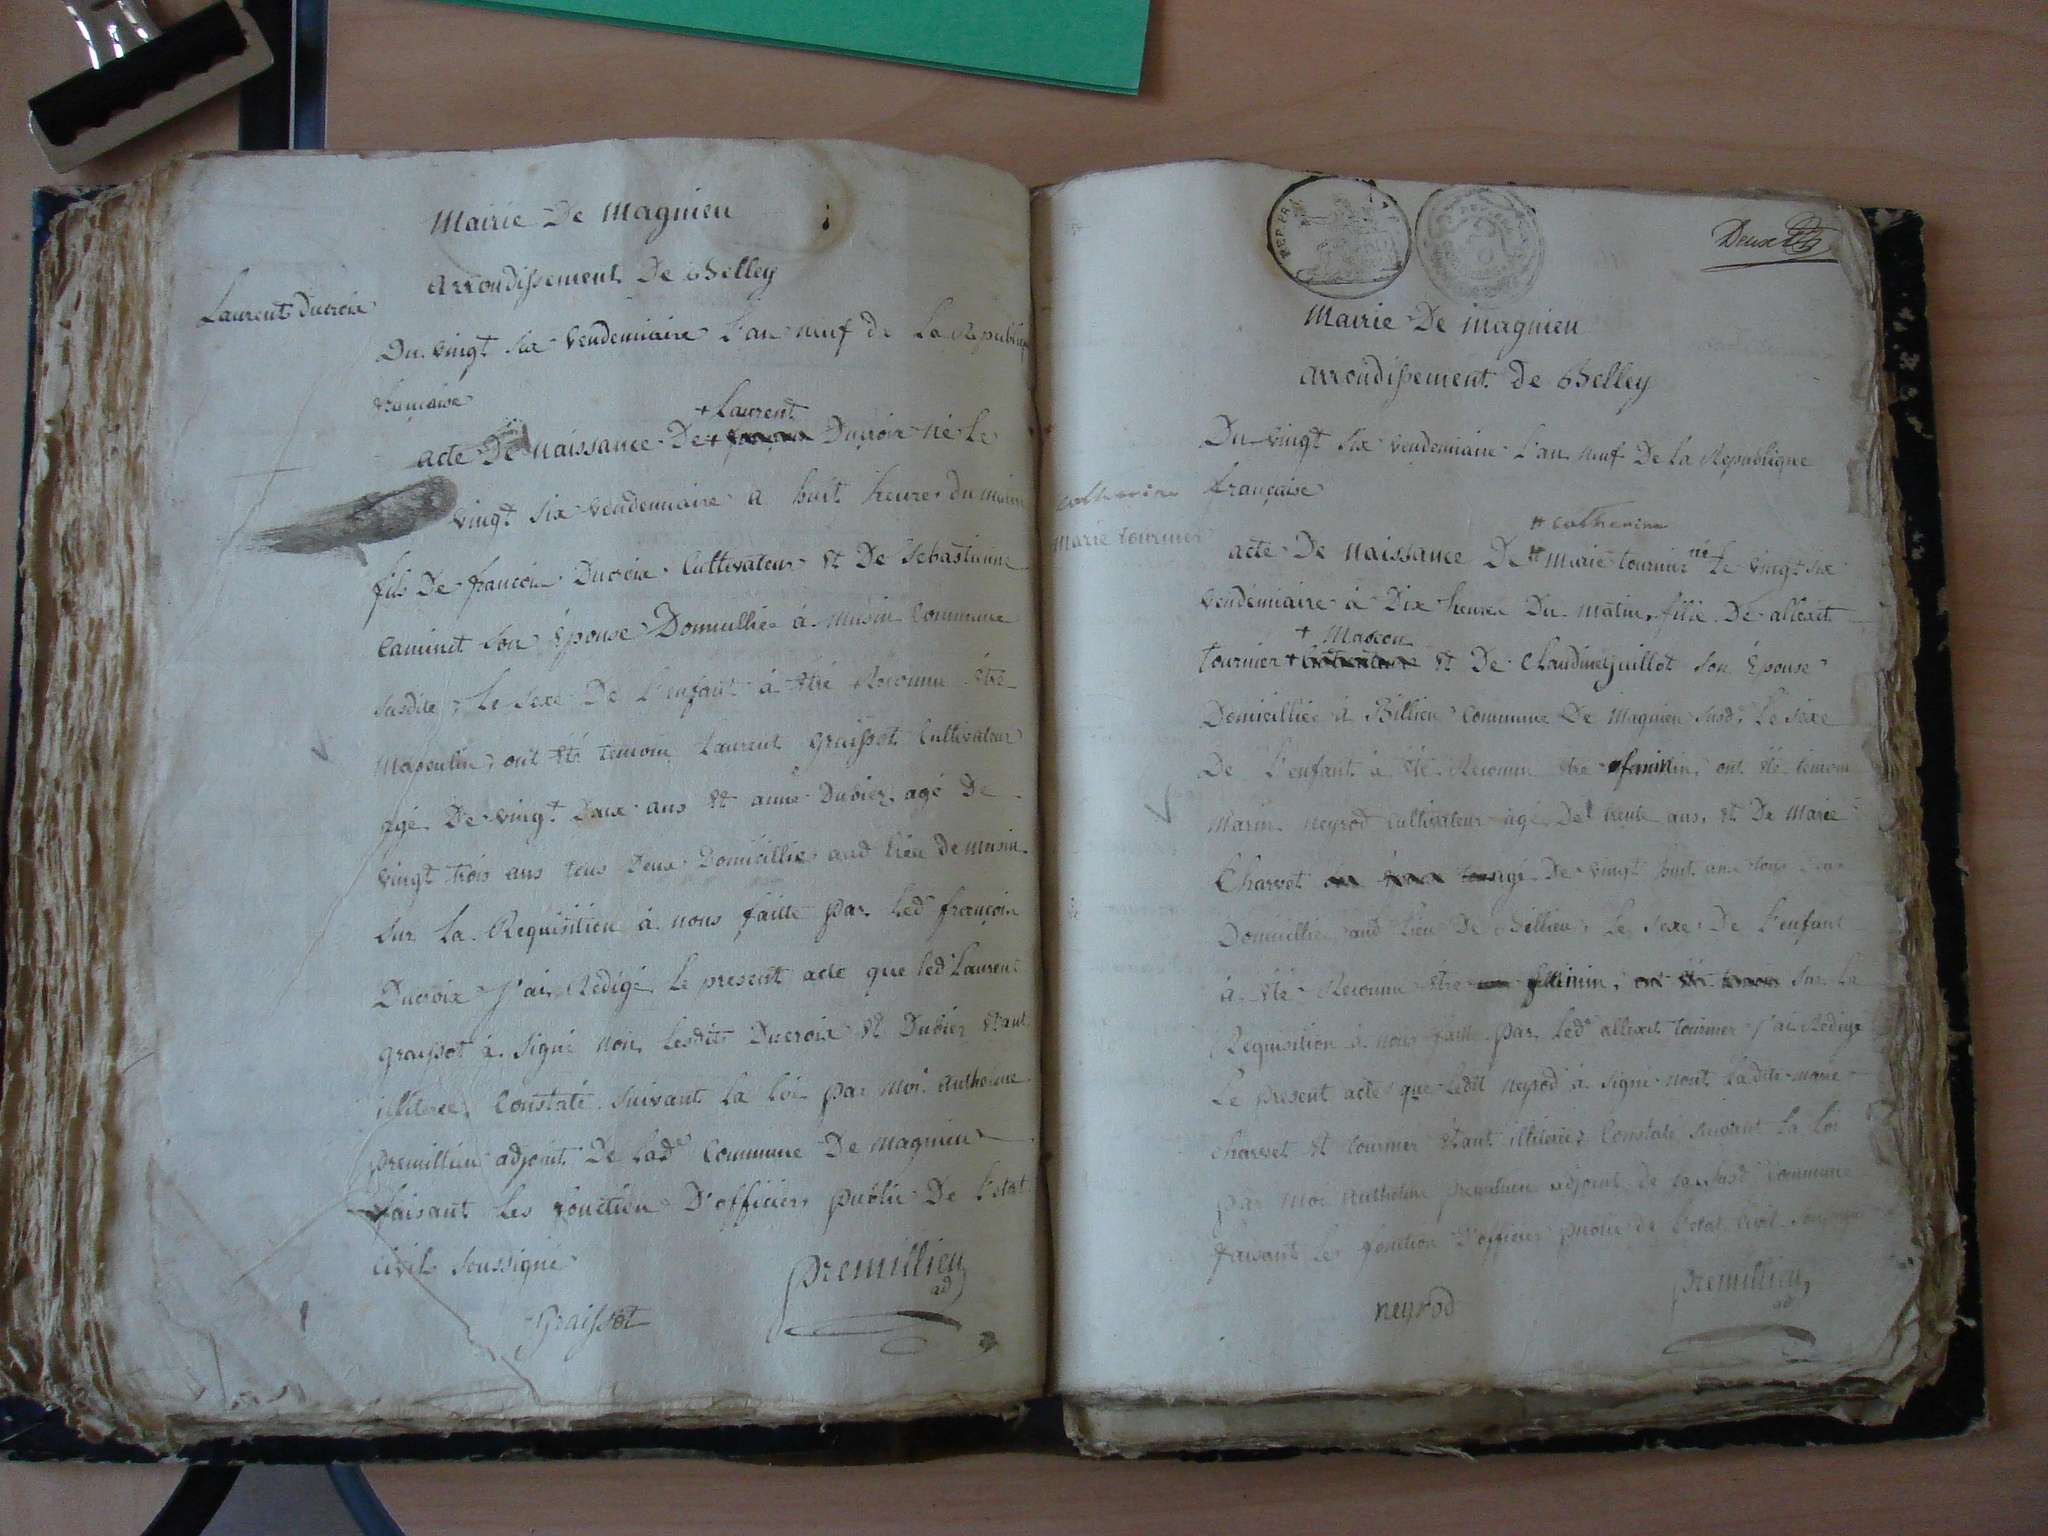 Mairie De Magnieu
arrondissement De Belley
Laurent Ducroix
Du vingt six vendemiaire l'an neuf de La Republique
française
+ Laurent
acte De naissance De + Ducroix né le
vingt six vendemiaire a huit heures du matin
fils De françois Ducroix Cultivateur et De Sebastienne
Caminet son Épouse Domicilliés á Musin Commune
susdite, Le sexe De L'enfant á été Reconnu être
Masculin, ont été temoins Laurent graissot Cultivateur
agé De vingt Deux ans et anne Dubiez agé De
vingt trois ans tous Deux Domicilliés aud lieu de musin
sur La Requisition á nous faitte par led françois
Ducroix J'ai Redigé Le present acte que led Laurent
graissot á Signé non Lesdits Ducroix et Dubiez étant
illiterés, Constaté suivant La loi par moi anthoine
premillieu adjoint De Lad.e Commune De magnieu
faisant Les fonction D'officier public De L'etat
civil soussigné
premillieu
ad
Graissot
REP. FRA
Deux
Mairie De magnieu
arrondissement de Belley
Du vingt six vendemiaire l'an neuf De La Republique
française
catherine
marie tournier
# catherine
acte De naissance De # Marie tournier né le vingt six
vendémiaire á Dix heures Du matin, fille De allexit
+ Macon
tournier + et De Claudine guillot son Épouse
Domicilliés á Billieu Commune De Magnieu susd. Le sexe
De L'enfant á été Reconnu être feminin, ont été temoins
Marin neyrod Cultivateur agé De trente ans, et De Marie
Charvet agé De vingt huit ans tous Deux
Domicilliés aud Lieu De Billieu, Le sexe De L'enfant
á été Reconnu être feminin, sur La
Requisition á nous faitte par Led allexit tournier J'ai Redigé
Le present acte que Ledit neyrod á signé nont Ladite marie
charvet et tournier étant illiterés, Constaté suivant La loi
par moi anthoine premillieu adjoint de la susd Commune
faisant Les fonction D'officier public de L'etat Civil
neyrod
premillieu
ad